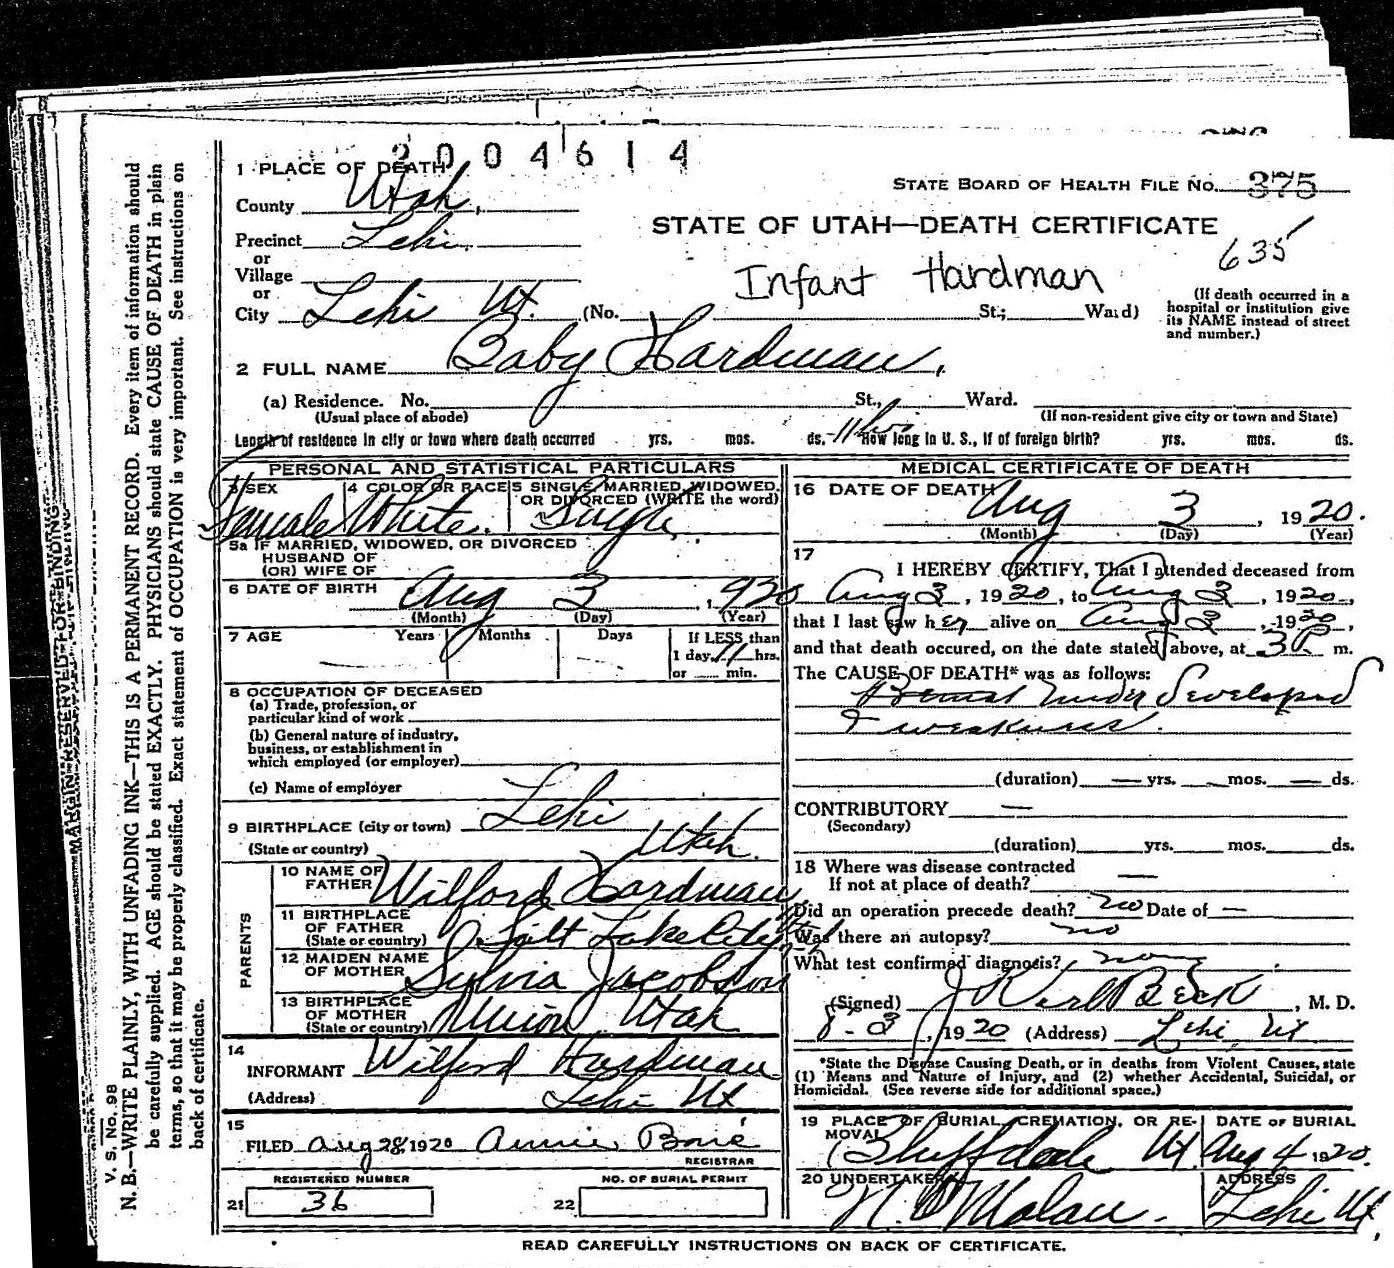 2004614
1 PLACE OF DEATH
County Utah,
Precinct Lehi
or
Village
or
City Lehi Ut. (No. St.; Ward)
STATE BOARD OF HEALTH FILE No. 375
STATE OF UTAH—DEATH CERTIFICATE
635
Infant Hardman
(If death occurred in a
hospital or institution give
its NAME instead of street
and number.)
2 FULL NAME Baby Hardman,
(a) Residence. No. St., Ward.
(Usual place of abode) (If non-resident give city or town and State)
Length of residence in city or town where death occurred yrs. mos. ds. 11 hrs How long in U. S., if of foreign birth? yrs. mos. ds.
PERSONAL AND STATISTICAL PARTICULARS
3 SEX
Female
4 COLOR OR RACE
White.
5 SINGLE, MARRIED, WIDOWED,
OR DIVORCED (WRITE the word)
Single
5a IF MARRIED, WIDOWED, OR DIVORCED
HUSBAND OF
(OR) WIFE OF
6 DATE OF BIRTH Aug 3, 1920
(Month) (Day) (Year)
7 AGE Years Months Days If LESS than
1 day, 11 hrs.
or min.
8 OCCUPATION OF DECEASED
(a) Trade, profession, or
particular kind of work
(b) General nature of industry,
business, or establishment in
which employed (or employer)
(c) Name of employer
9 BIRTHPLACE (city or town) Lehi
(State or country) Utah.
PARENTS
10 NAME OF
FATHER Wilford Hardman
11 BIRTHPLACE
OF FATHER
(State or country) Salt Lake City Ut
12 MAIDEN NAME
OF MOTHER Sylvia Jacobson
13 BIRTHPLACE
OF MOTHER
(State or country) Union Utah
14
INFORMANT Wilford Hardman
(Address) Lehi Ut
15
FILED Aug 28, 1920 Annie Bone
REGISTRAR
REGISTERED NUMBER
21 36
NO. OF BURIAL PERMIT
22
MEDICAL CERTIFICATE OF DEATH
16 DATE OF DEATH Aug 3, 1920.
(Month) (Day) (Year)
17
I HEREBY CERTIFY, That I attended deceased from
Aug 3, 1920, to Aug 3, 1920,
that I last saw her alive on Aug 3, 1920,
and that death occured, on the date stated above, at 3 P. m.
The CAUSE OF DEATH* was as follows:
under developed
& weakness.
(duration) — yrs. — mos. — ds.
CONTRIBUTORY —
(Secondary)
(duration) yrs. mos. ds.
18 Where was disease contracted
If not at place of death? —
Did an operation precede death? no Date of —
Was there an autopsy? no
What test confirmed diagnosis? none
(Signed) J Karl Beck, M. D.
8-3, 1920 (Address) Lehi Ut
*State the Disease Causing Death, or in deaths from Violent Causes, state
(1) Means and Nature of Injury, and (2) whether Accidental, Suicidal, or
Homicidal. (See reverse side for additional space.)
19 PLACE OF BURIAL, CREMATION, OR RE-
MOVAL
Bluffdale Ut
DATE OF BURIAL
Aug 4 1920.
20 UNDERTAKER
N. O Malan.
ADDRESS
Lehi Ut,
READ CAREFULLY INSTRUCTIONS ON BACK OF CERTIFICATE.
MARGIN RESERVED FOR BINDING
V. S. No. 98
N. B.—WRITE PLAINLY, WITH UNFADING INK—THIS IS A PERMANENT RECORD. Every item of information should
be carefully supplied. AGE should be stated EXACTLY. PHYSICIANS should state CAUSE OF DEATH in plain
terms, so that it may be properly classified. Exact statement of OCCUPATION is very important. See instructions on
back of certificate.